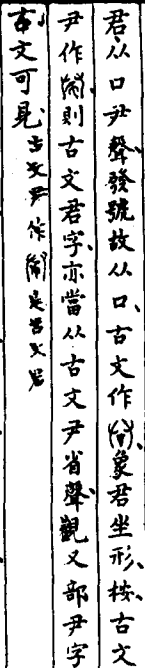 君从口尹聲發號故从口古文作象君坐形桉古文
尹作則古文君字亦當从古文尹省聲觀又部尹字
古文可見古文尹作是古文君